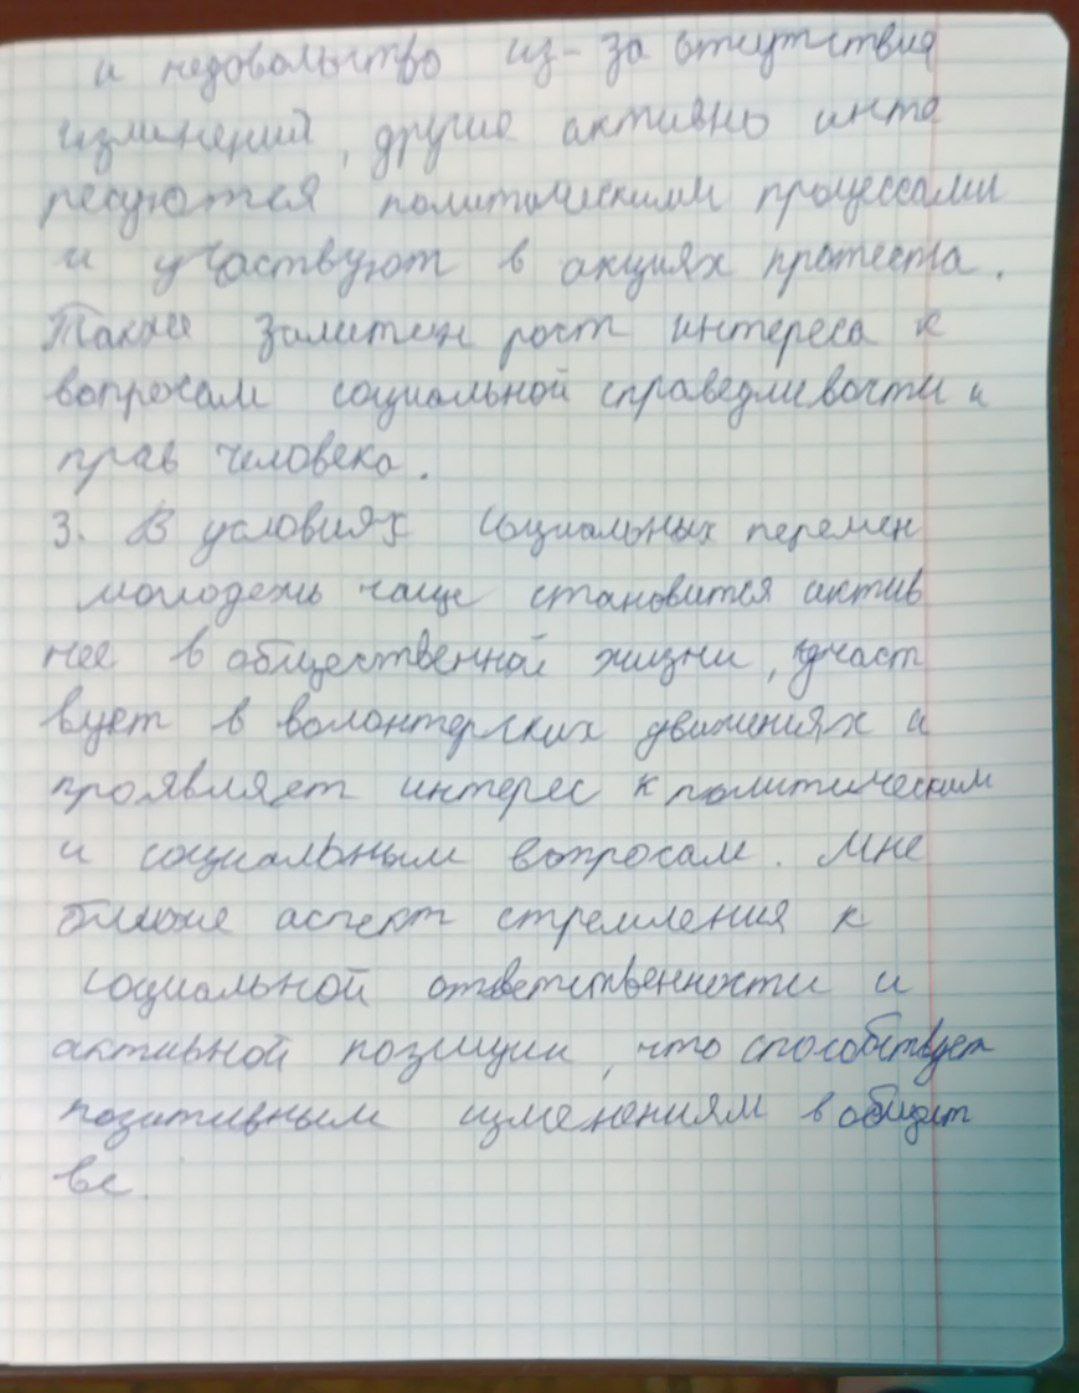 и недовольство из-за отсутствия
изменений, другие активно инте
ресуются политическими процессами
и участвуют в акциях протеста.
Также заметен рост интереса к
вопросам социальной справедливости и
прав человека.
3. В условиях социальных перемен
молодежь чаще становится актив
нее в общественной жизни, участ
вует в волонтерских движениях и
проявляет интерес к политическим
и социальным вопросам. Мне
ближе аспект стремления к
социальной ответственности и
активной позиции, что способствует
позитивным изменениям в общест
ве.